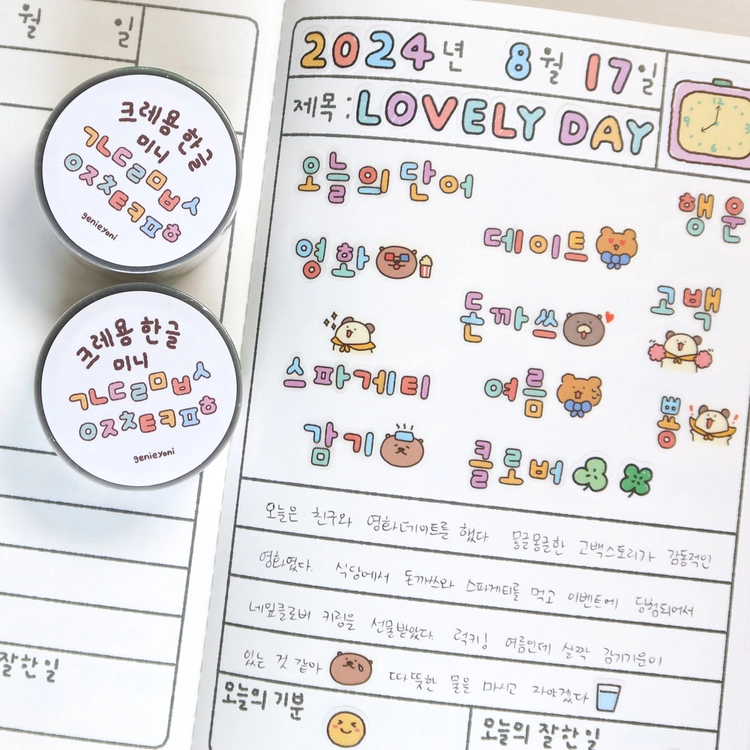 월 일
크레용 한글
미니
ㄱㄴㄷㄹㅁㅂㅅ
ㅇㅈㅊㅌㅋㅍㅎ
genieyoni
크레용 한글
미니
ㄱㄴㄷㄹㅁㅂㅅ
ㅇㅈㅊㅌㅋㅍㅎ
genieyoni
잘한일
2024년 8월 17일
제목 : LOVELY DAY
12
3
6
9
오늘의 단어
행운
영화
데이트
돈까쓰
고백
스파게티
여름
뿅
감기
클로버
오늘은 친구와 영화데이트를 했다 몽글몽글한 고백스토리가 감동적인
영화였다. 식당에서 돈까쓰와 스파게티를 먹고 이벤트에 당첨되어서
네잎클로버 키링을 선물받았다 럭키! 여름인데 살짝 감기기운이
있는 것 같아 따뜻한 물을 마시고 자야겠다
오늘의 기분
오늘의 잘한일